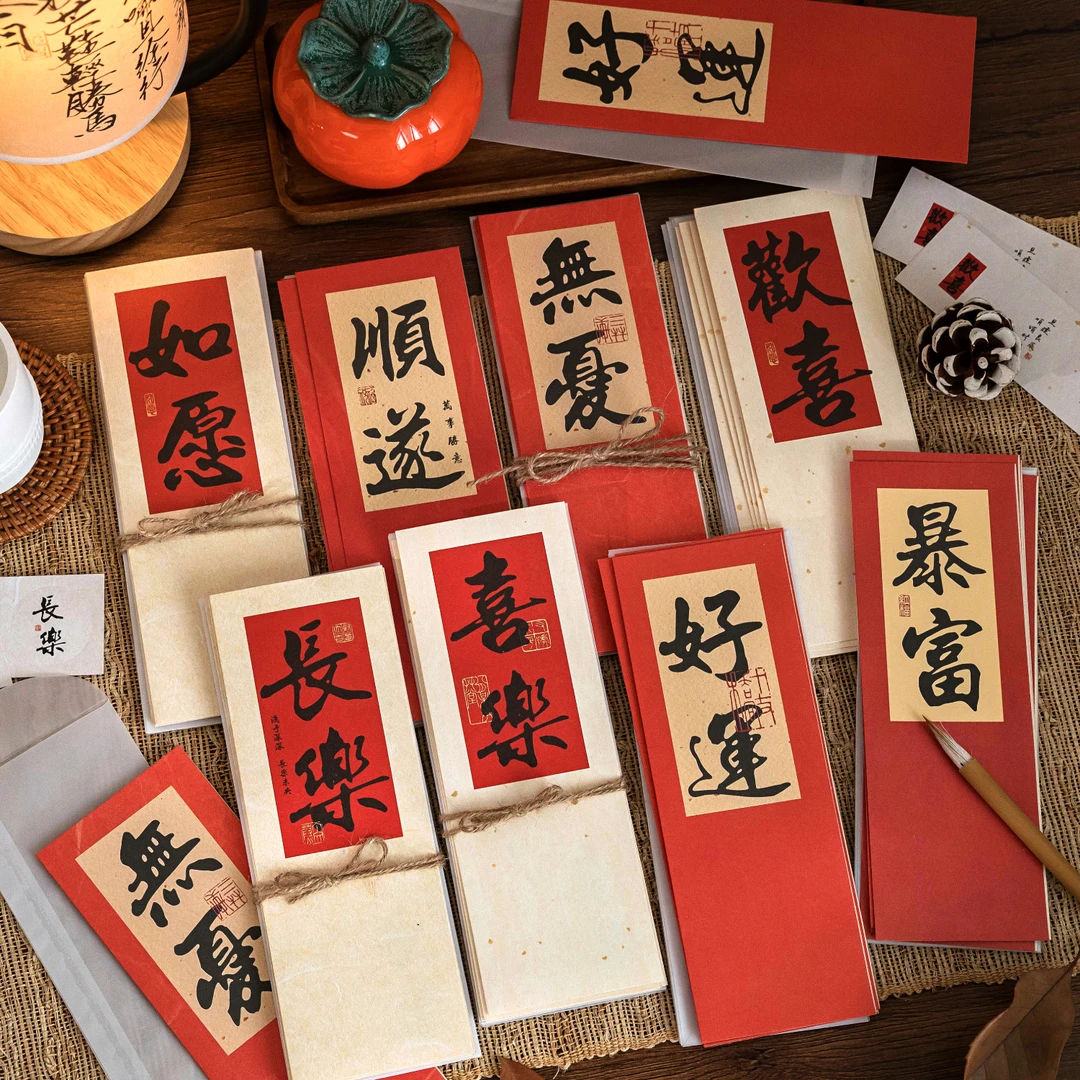 好運
如愿
順遂
萬事勝意
無憂
歡喜
歡喜
歡喜
暴富
長樂
長樂
喜樂
好運
無憂